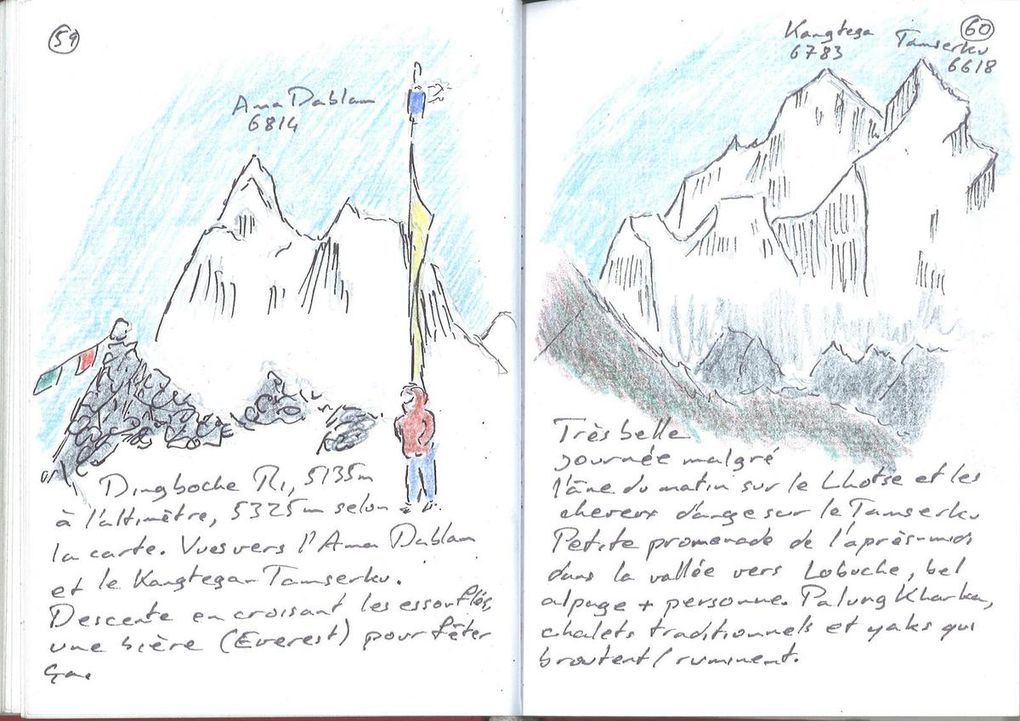 59
Ama Dablam
6814
Dingboche Ri, 5135m
à l'altimètre, 5325m selon
la carte. Vues vers l'Ama Dablam
et le Kangtega-Tamserku.
Descente en croisant les essouflés,
une bière (Everest) pour fêter
ça.
60
Kangtega
6783
Tamserku
6618
Très belle
journée malgré
l'âne du matin sur le Lhotse et les
cheveux d'ange sur le Tamserku
Petite promenade de l'après-midi
dans la vallée vers Lobuche, bel
alpage + personne. Palung Kharka,
chalets traditionnels et yaks qui
broutent/ruminent.